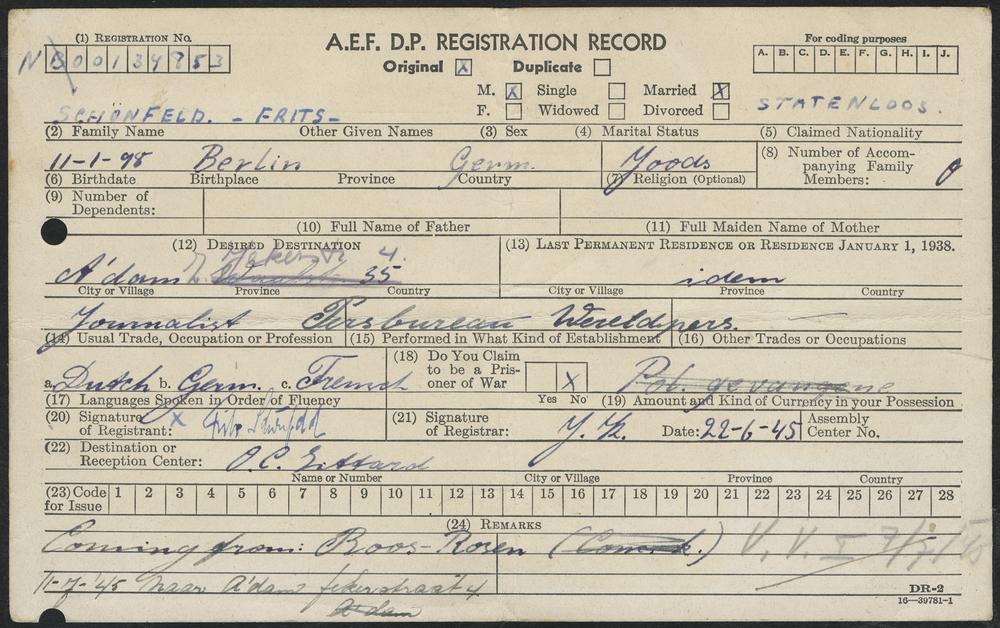 (1) REGISTRATION NO.
N B 0 0 1 3 4 9 5 3
A.E.F. D.P. REGISTRATION RECORD
Original X Duplicate
For coding purposes
A. B. C. D. E. F. G. H. I. J.
M. X Single Married X
F. Widowed Divorced
SCHÖNFELD. - FRITS - STATENLOOS.
(2) Family Name Other Given Names (3) Sex (4) Marital Status (5) Claimed Nationality
11-1-98 Berlin Germ. Joods
(8) Number of Accompanying Family Members: 0
(6) Birthdate Birthplace Province Country (7) Religion (Optional)
(9) Number of Dependents:
(10) Full Name of Father (11) Full Maiden Name of Mother
(12) DESIRED DESTINATION (13) LAST PERMANENT RESIDENCE OR RESIDENCE JANUARY 1, 1938.
Jekerstr 4.
A'dam 35 idem
City or Village Province Country City or Village Province Country
Journalist Persbureau Wereldpers. —
(14) Usual Trade, Occupation or Profession (15) Performed in What Kind of Establishment (16) Other Trades or Occupations
a. Dutch b. Germ. c. French
(18) Do You Claim to be a Prisoner of War X
Yes No
Pol. gevangene
(17) Languages Spoken in Order of Fluency (19) Amount and Kind of Currency in your Possession
(20) Signature of Registrant: X Frits Schönfeld
(21) Signature of Registrar: Date: 22-6-45 Assembly Center No.
(22) Destination or Reception Center: O.C. Sittard
Name or Number City or Village Province Country
(23) Code for Issue 1 2 3 4 5 6 7 8 9 10 11 12 13 14 15 16 17 18 19 20 21 22 23 24 25 26 27 28
(24) REMARKS
Coming from: Roos-Rosen V.V. I
11-7-'45 naar A'dam Jekerstraat 4
A'dam
DR-2
16—39781-1